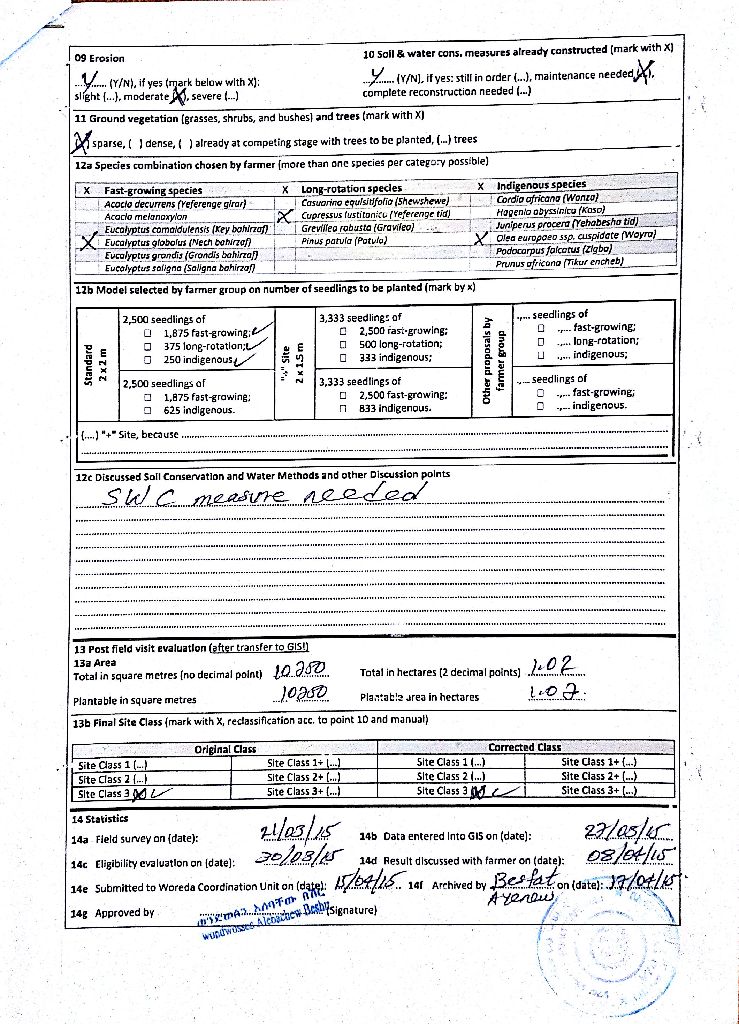 09 Erosion
10 Soil & water cons. measures already constructed (mark with X)
...Y..... (Y/N), if yes (mark below with X):
slight (...), moderate (X), severe (...)
...Y..... (Y/N), if yes: still in order (...), maintenance needed (X),
complete reconstruction needed (...)
11 Ground vegetation (grasses, shrubs, and bushes) and trees (mark with X)
(X) sparse, ( ) dense, ( ) already at competing stage with trees to be planted, (...) trees
12a Species combination chosen by farmer (more than one species per category possible)
X Fast-growing species X Long-rotation species X Indigenous species
Acacia decurrens (Yeferenge girar) Casuarina equisitifolia (Shewshewe) Cordia africana (Wanza)
Acacia melanoxylon X Cupressus lustitanica (Yeferenge tid) Hagenia abyssinica (Koso)
Eucalyptus camaldulensis (Key bahirzaf) Grevillea robusta (Gravilea) Juniperus procera (Yehabesha tid)
X Eucalyptus globolus (Nech bahirzaf) Pinus patula (Patula) X Olea europaea ssp. cuspidate (Wayra)
Eucalyptus grandis (Grandis bahirzaf) Podocarpus falcatus (Zigba)
Eucalyptus saligna (Saligna bahirzaf) Prunus africana (Tikur encheb)
12b Model selected by farmer group on number of seedlings to be planted (mark by x)
Standard
2 x 2 m
2,500 seedlings of
☐ 1,875 fast-growing; ✓
☐ 375 long-rotation; ✓
☐ 250 indigenous. ✓
2,500 seedlings of
☐ 1,875 fast-growing;
☐ 625 indigenous.
"+" Site
2 x 1.5 m
3,333 seedlings of
☐ 2,500 fast-growing;
☐ 500 long-rotation;
☐ 333 indigenous;
3,333 seedlings of
☐ 2,500 fast-growing;
☐ 833 indigenous.
Other proposals by
farmer group
.,... seedlings of
☐ .,... fast-growing;
☐ .,... long-rotation;
☐ .,... indigenous;
.,... seedlings of
☐ .,... fast-growing;
☐ .,... indigenous.
(....) "+" Site, because
12c Discussed Soil Conservation and Water Methods and other Discussion points
SWC measure needed
13 Post field visit evaluation (after transfer to GIS!)
13a Area
Total in square metres (no decimal point) 10250 Total in hectares (2 decimal points) 1.02
Plantable in square metres 10250 Plantable area in hectares 1.02
13b Final Site Class (mark with X, reclassification acc. to point 10 and manual)
Original Class Corrected Class
Site Class 1 (...) Site Class 1+ (...) Site Class 1 (...) Site Class 1+ (...)
Site Class 2 (...) Site Class 2+ (...) Site Class 2 (...) Site Class 2+ (...)
Site Class 3 (X) ✓ Site Class 3+ (...) Site Class 3 (X) ✓ Site Class 3+ (...)
14 Statistics
14a Field survey on (date): 21/03/15 14b Data entered into GIS on (date): 27/03/15
14c Eligibility evaluation on (date): 30/03/15 14d Result discussed with farmer on (date): 08/04/15
14e Submitted to Woreda Coordination Unit on (date): 15/04/15 14f Archived by Besfat Ayenew on (date): 17/04/15
14g Approved by (Signature)